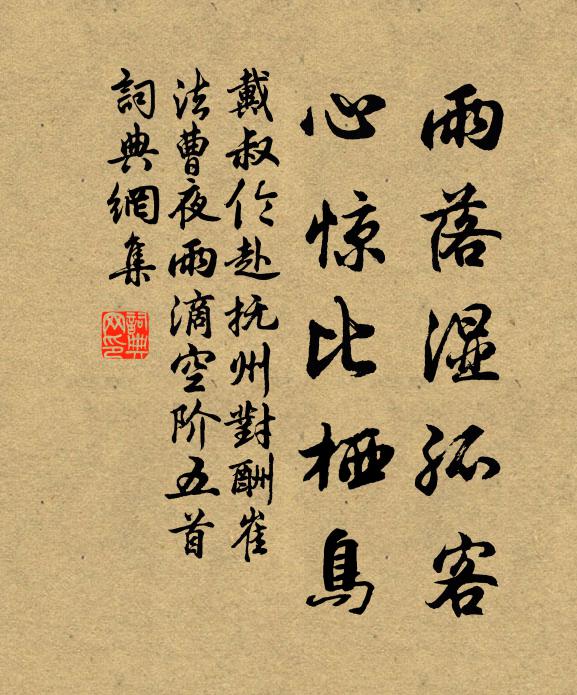 雨落湿孤客
心惊比栖鳥
戴叔伦赴抚州對酬崔
法曹夜雨滴空阶五首
詞典網集
詞典網印